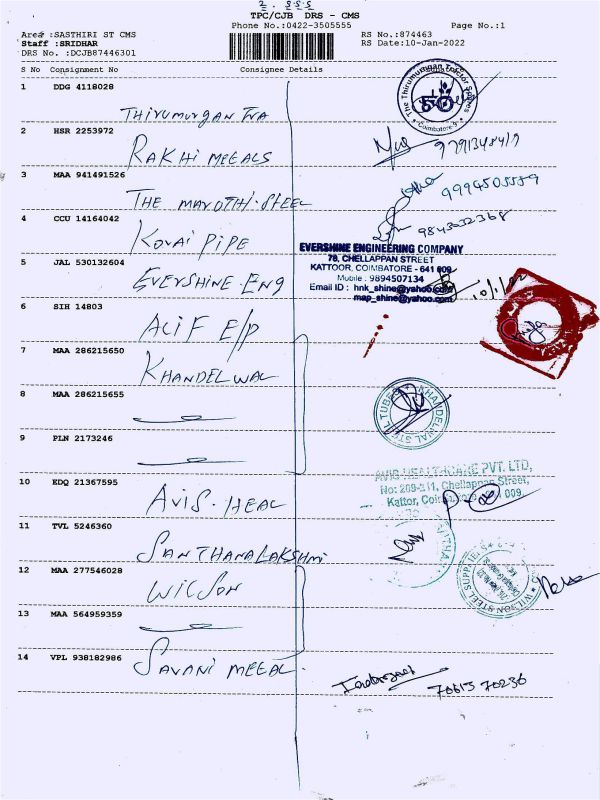 2. 555
TPC/CJB DRS - CMS
Phone No.:0422-3505555 Page No.:1
Area :SASTHIRI ST CMS RS No.:874463
Staff :SRIDHAR RS Date:10-Jan-2022
DRS No. :DCJB87446301
S No Consignment No Consignee Details
1 DDG 4118028
The Thirumurugan Tractor Spares
Coimbatore-9
THIRUMURGAN TRA
2 HSR 2253972
RAKHI METALS
3 MAA 941491526
THE MAROTHI.STEEL 9994505559
4 CCU 14164042
9843032368
KOVAI PIPE
EVERSHINE ENGINEERING COMPANY
78, CHELLAPPAN STREET
KATTOOR, COIMBATORE - 641 009
5 JAL 530132604
Mobile : 9894507134
EVERSHINE-ENG
Email ID : hnk_shine@yahoo.com
map_shine@yahoo.com
6 SIH 14803
ALIF E/P
7 MAA 286215650
KHANDELWAL
8 MAA 286215655
KHANDELWAL STEEL TUBES
9 PLN 2173246
AVIS HEALTHCARE PVT. LTD,
No: 209-211, Chellappan Street,
10 EDQ 21367595
Kattor, Coimbatore - 641 009.
AVIS.HEAL
11 TVL 5246360
SANTHANALAKSHMI
12 MAA 277546028
WILSON
WILSON STEEL SUPPLIERS
13 MAA 564959359
14 VPL 938182986
SAVANI METAL
70613 70236